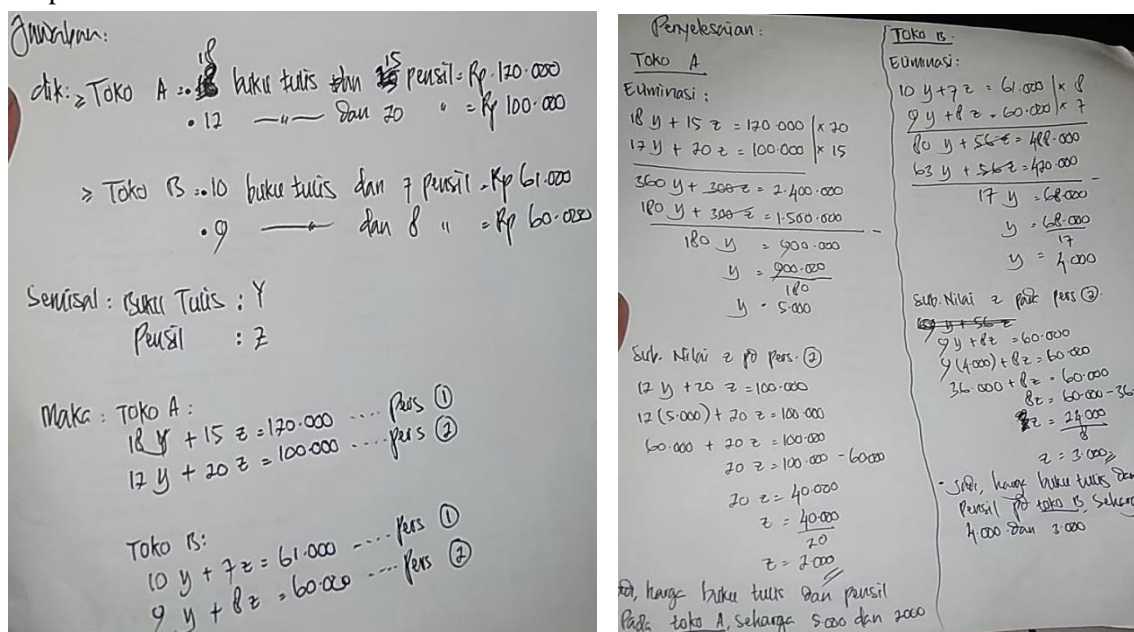 Jawaban:
dik: > Toko A : • 18 buku tulis dan 15 pensil = Rp. 120.000
• 12 —"— dan 20 " = Rp 100.000
> Toko B : • 10 buku tulis dan 7 pensil = Rp 61.000
• 9 —"— dan 8 " = Rp 60.000
Semisal : Buku Tulis : Y
Pensil : Z
Maka : Toko A :
18 y + 15 z = 120.000 .... Pers ①
12 y + 20 z = 100.000 .... Pers ②
Toko B:
10 y + 7 z = 61.000 .... Pers ①
9 y + 8 z = 60.000 .... Pers ②
Penyelesaian :
Toko A
Eliminasi :
18 y + 15 z = 120.000 | x 20
12 y + 20 z = 100.000 | x 15
360 y + 300 z = 2.400.000
180 y + 300 z = 1.500.000 -
180 y = 900.000
y = 900.000
180
y = 5.000
Sub. Nilai z pd Pers. ②
12 y + 20 z = 100.000
12 (5.000) + 20 z = 100.000
60.000 + 20 z = 100.000
20 z = 100.000 - 60000
20 z = 40.000
z = 40.000
20
z = 2.000
harga buku tulis dan pensil
Pada toko A, seharga 5.000 dan 2000
Toko B.
Eliminasi :
10 y + 7 z = 61.000 | x 8
9 y + 8 z = 60.000 | x 7
80 y + 56 z = 488.000
63 y + 56 z = 420.000 -
17 y = 68.000
y = 68.000
17
y = 4.000
Sub. Nilai z pada pers ②.
9 y + 8z = 60.000
9 (4.000) + 8z = 60.000
36.000 + 8z = 60.000
8z = 60.000 - 36
z = 24.000
8
z = 3.000
- Jadi, harga buku tulis dan
Pensil pd toko B, seharg
4.000 dan 3.000